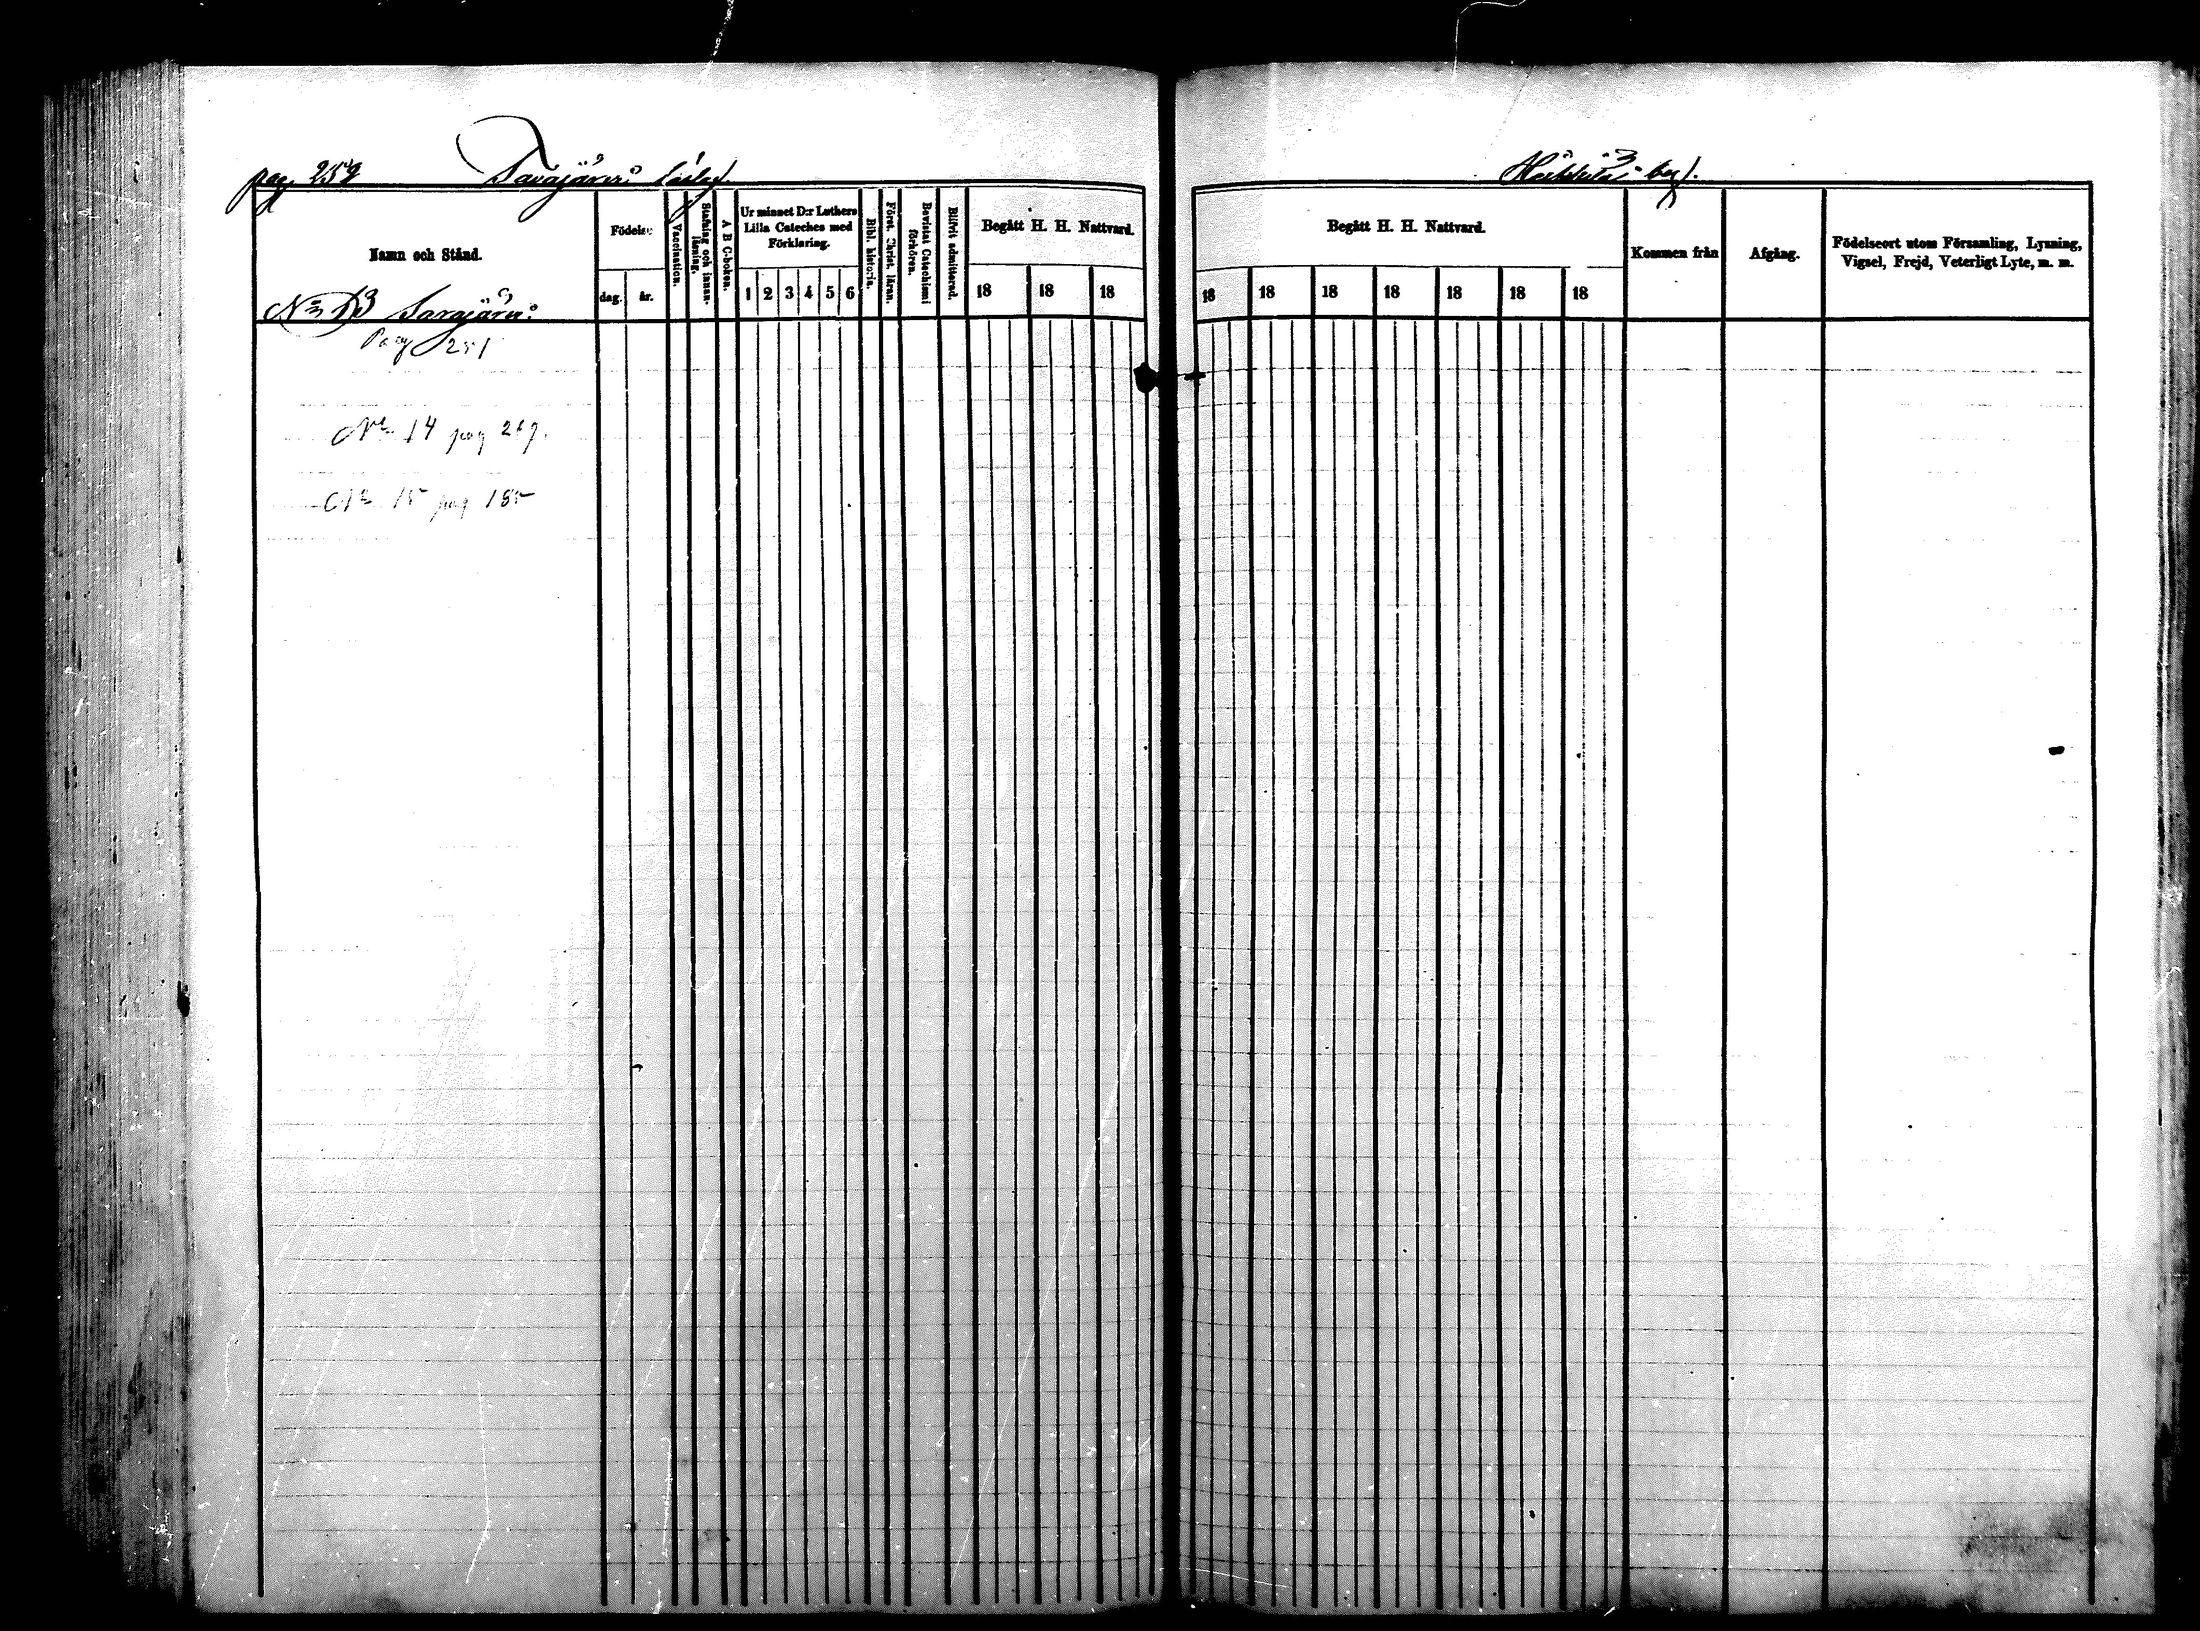 pag. 259 Savajärvi
by.
Namn och Stånd.
Födelse
dag. år.
Vaccination.
Stafning och innanläsning.
A B C-boken.
Ur minnet D:r Luthers Lilla Cateches med Förklaring.
1 2 3 4 5 6
Bibl. historia.
Förest. Christ. läran.
Bevistat Catechismi förhören.
Blifvit admitterad.
Begått H. H. Nattvard.
18 18 18
Begått H. H. Nattvard.
18 18 18 18 18 18 18
Kommen från
Afgång.
Födelseort utom Församling, Lysning, Vigsel, Frejd, Veterligt Lyte, m. m.
No 13 Savajärvi
Pag 251
No 14 pag 267.
No 15 pag 185